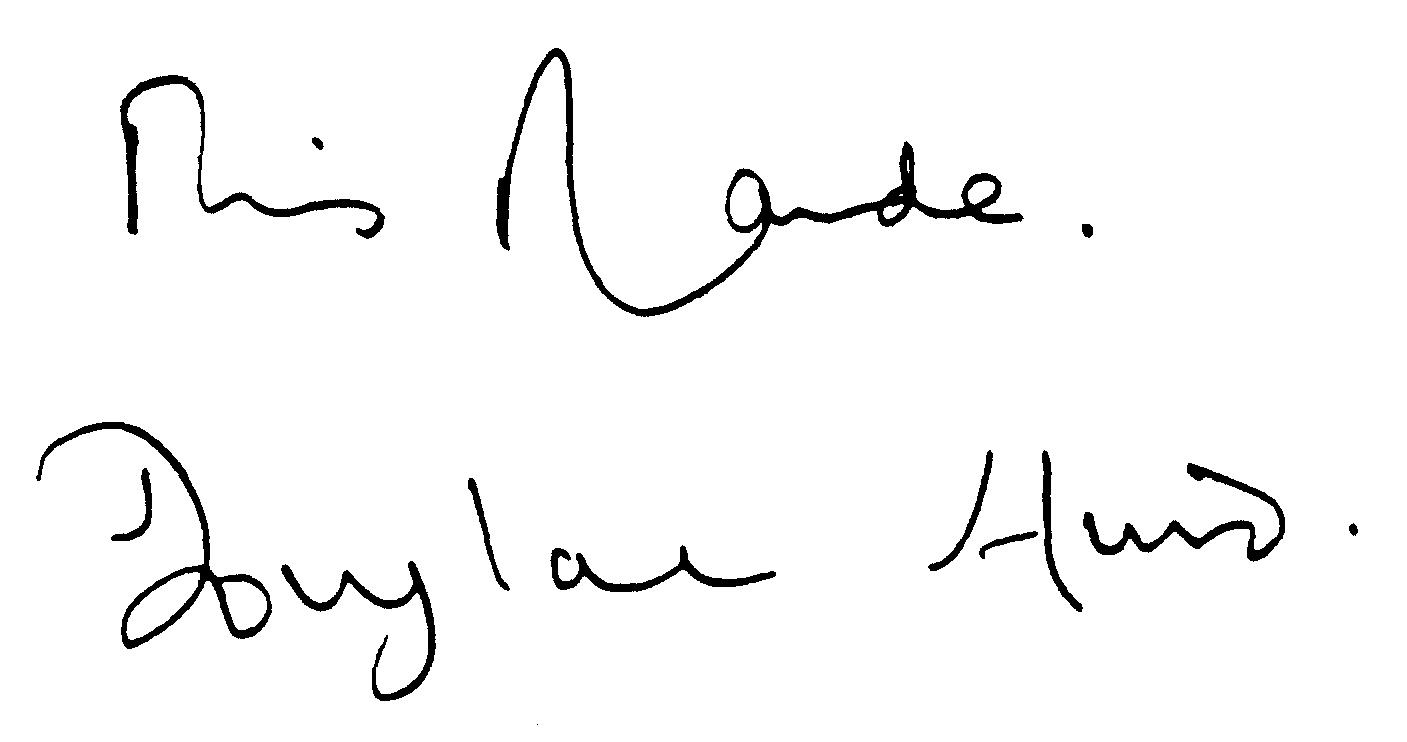 Chris Maude.
Douglas Hurd.